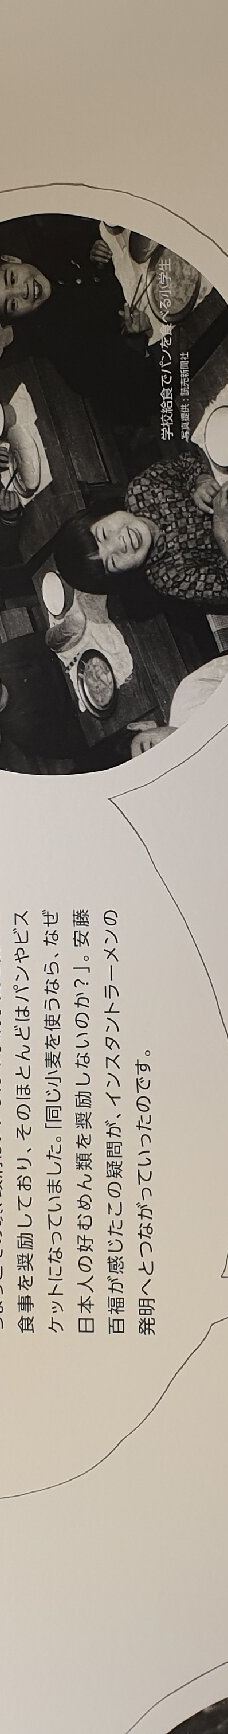 食事を奨励しており、そのほとんどはパンやビス
ケットになっていました。「同じ小麦を使うなら、なぜ
日本人の好むめん類を奨励しないのか？」。安藤
百福が感じたこの疑問が、インスタントラーメンの
発明へとつながっていったのです。
学校給食でパンを食べる小学生
写真提供：読売新聞社